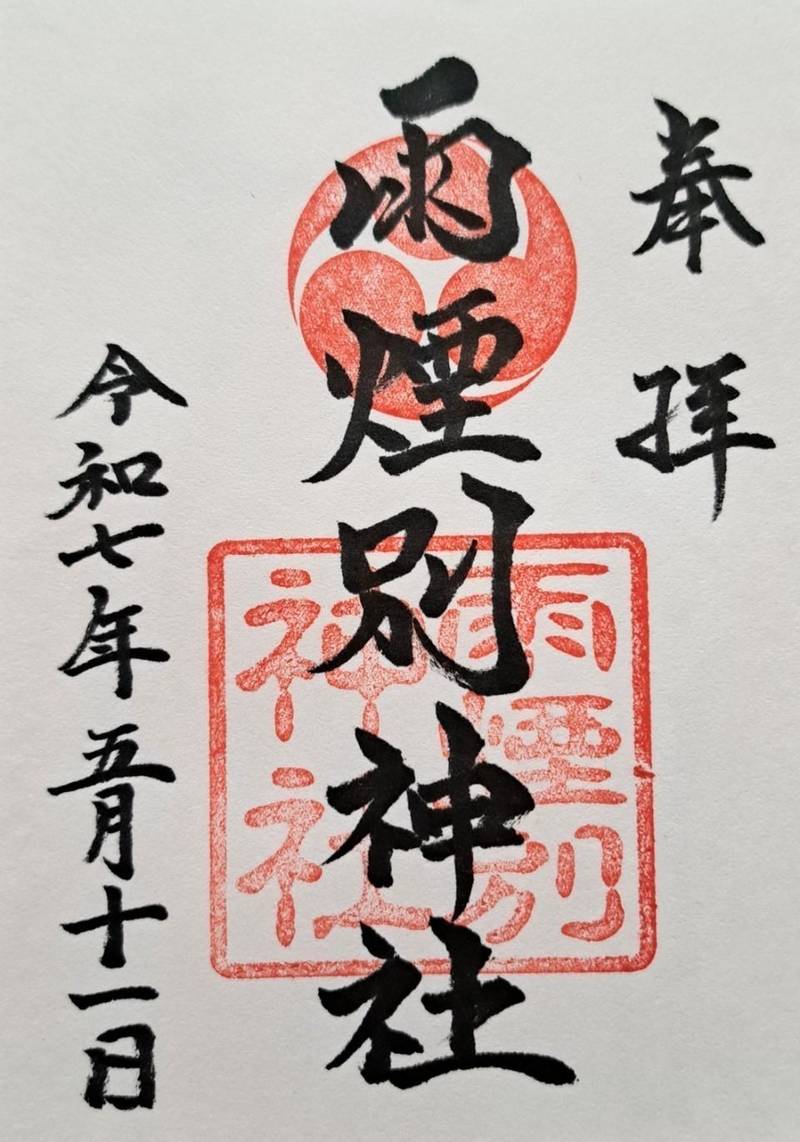 奉拝
雨煙別神社
雨煙別
神社
令和七年五月十一日